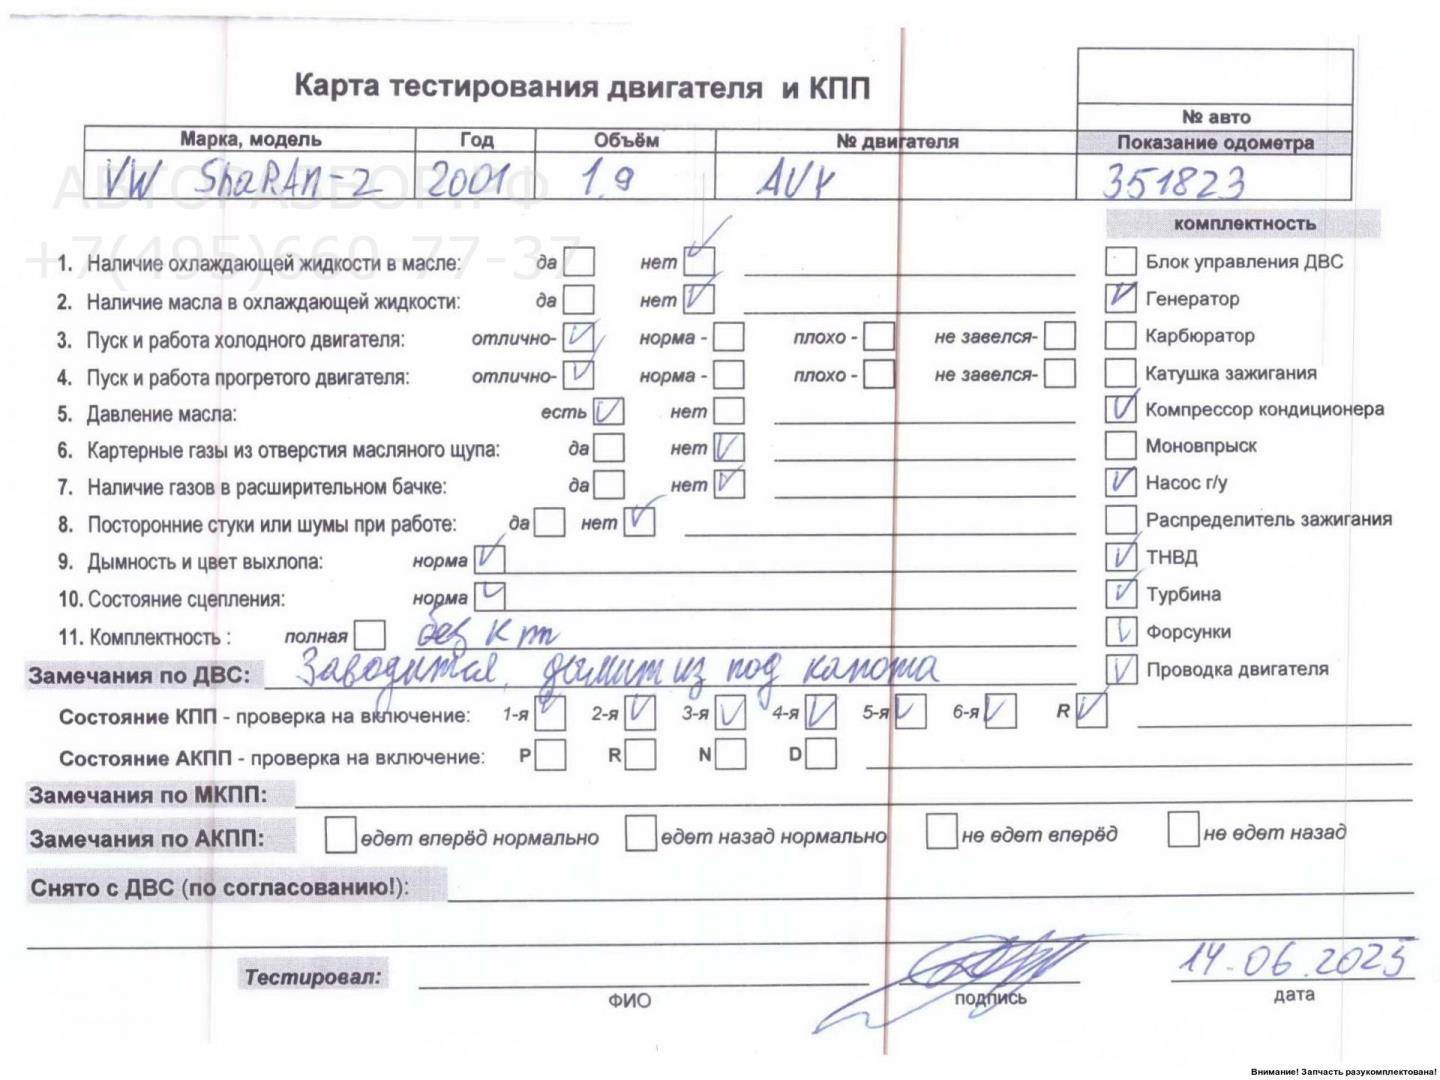 Карта тестирования двигателя и КПП
№ авто
Марка, модель Год Объём № двигателя Показание одометра
VW ShaRAn-2 2001 1.9 AUY 351823
АВТОРАЗБОР.РФ
+7(495)660-77-37
комплектность
1. Наличие охлаждающей жидкости в масле: да нет Блок управления ДВС
2. Наличие масла в охлаждающей жидкости: да нет Генератор
3. Пуск и работа холодного двигателя: отлично- норма - плохо - не завелся- Карбюратор
4. Пуск и работа прогретого двигателя: отлично- норма - плохо - не завелся- Катушка зажигания
5. Давление масла: есть нет Компрессор кондиционера
6. Картерные газы из отверстия масляного щупа: да нет Моновпрыск
7. Наличие газов в расширительном бачке: да нет Насос г/у
8. Посторонние стуки или шумы при работе: да нет Распределитель зажигания
9. Дымность и цвет выхлопа: норма ТНВД
10. Состояние сцепления: норма Турбина
11. Комплектность : полная без кпп Форсунки
Замечания по ДВС: Заводится, дымит из под капота Проводка двигателя
Состояние КПП - проверка на включение: 1-я 2-я 3-я 4-я 5-я 6-я R
Состояние АКПП - проверка на включение: P R N D
Замечания по МКПП:
Замечания по АКПП: едет вперёд нормально едет назад нормально не едет вперёд не едет назад
Снято с ДВС (по согласованию!):
Тестировал: 14.06.2025
ФИО подпись дата
Внимание! Запчасть разукомплектована!